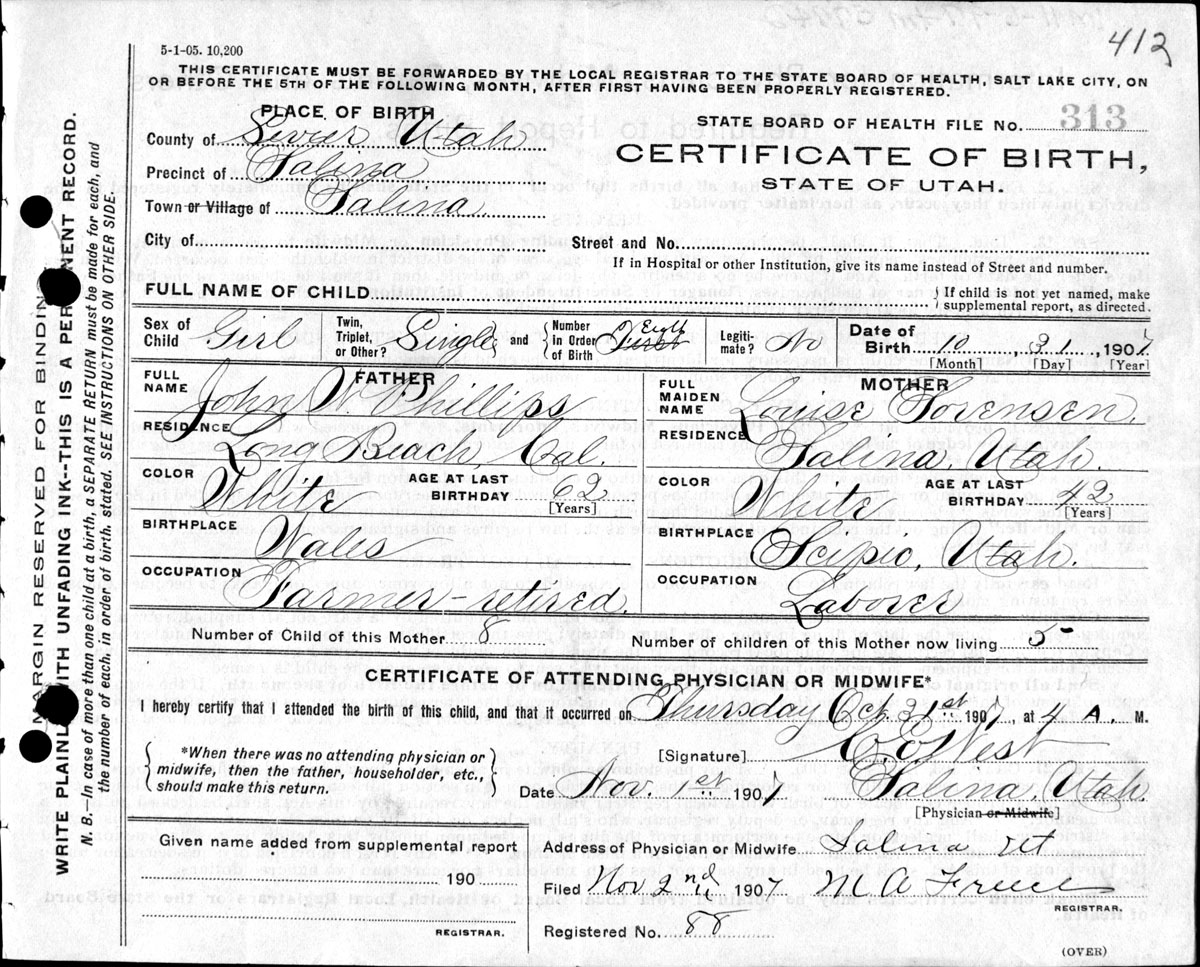 412
5-1-05. 10,200
THIS CERTIFICATE MUST BE FORWARDED BY THE LOCAL REGISTRAR TO THE STATE BOARD OF HEALTH, SALT LAKE CITY, ON
OR BEFORE THE 5TH OF THE FOLLOWING MONTH, AFTER FIRST HAVING BEEN PROPERLY REGISTERED.
PLACE OF BIRTH
STATE BOARD OF HEALTH FILE NO. 313
County of Sevier Utah
CERTIFICATE OF BIRTH,
Precinct of Salina
STATE OF UTAH.
Town or Village of Salina
City of Street and No.
If in Hospital or other Institution, give its name instead of Street and number.
FULL NAME OF CHILD { If child is not yet named, make supplemental report, as directed.
Sex of Child Girl Twin, Triplet, or Other? Single and { Number in Order of Birth Eight First Legitimate? No Date of Birth 10, 31, 1907
[Month] [Day] [Year]
FATHER MOTHER
FULL NAME John W. Phillips FULL MAIDEN NAME Louise Sorensen
RESIDENCE Long Beach, Cal. RESIDENCE Salina, Utah.
COLOR White AGE AT LAST BIRTHDAY 62 [Years] COLOR White AGE AT LAST BIRTHDAY 42 [Years]
BIRTHPLACE Wales BIRTHPLACE Scipio, Utah.
OCCUPATION Farmer - retired. OCCUPATION Laborer
Number of Child of this Mother 8 Number of children of this Mother now living 5
CERTIFICATE OF ATTENDING PHYSICIAN OR MIDWIFE*
I hereby certify that I attended the birth of this child, and that it occurred on Thursday Oct 31st 1907, at 4 A. M.
{ *When there was no attending physician or midwife, then the father, householder, etc., should make this return. }
[Signature] West
Date Nov. 1st 1907 Salina, Utah.
[Physician or Midwife]
Given name added from supplemental report
Address of Physician or Midwife Salina Ut
190
Filed Nov 2nd 1907 M A
REGISTRAR.
REGISTRAR.
Registered No. 88
(OVER)
MARGIN RESERVED FOR BINDING
WRITE PLAINLY WITH UNFADING INK--THIS IS A PERMANENT RECORD.
N. B. In case of more than one child at a birth, a SEPARATE RETURN must be made for each, and
the number of each, in order of birth, stated. SEE INSTRUCTIONS ON OTHER SIDE.